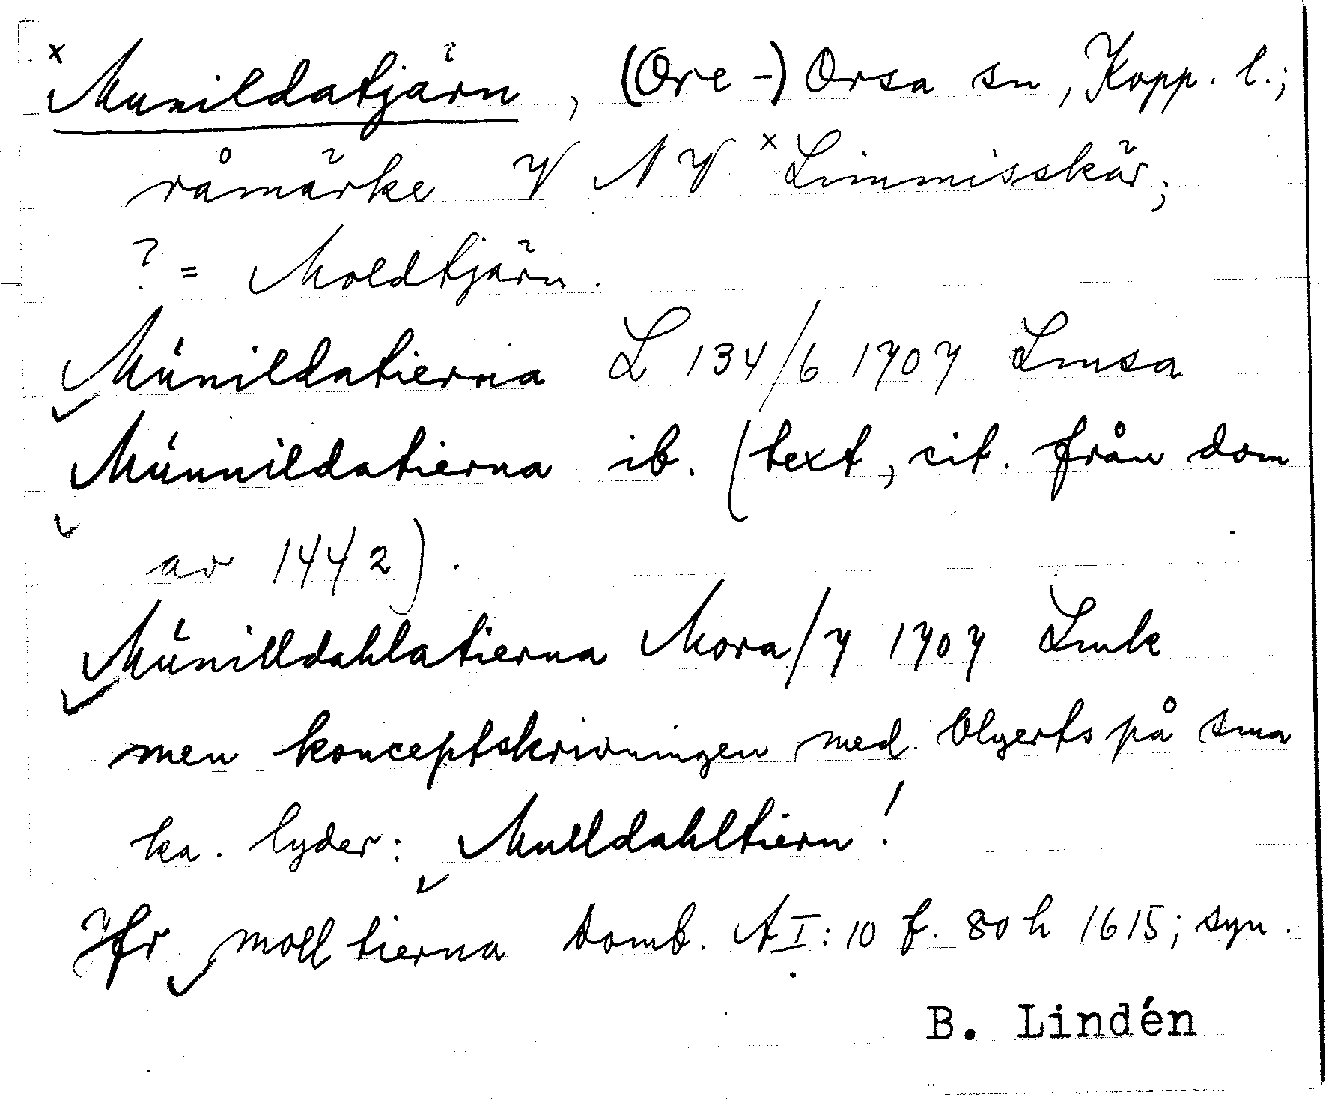 x Munildatjärn, (Ore-) Orsa sn, Kopp. l.;
råmärke V NV x Limmisskär;
? = Moldtjärn.
Múnildatierna L 134/6 1707 Lmsa
Múnnildatierna ib. (text, cit. från dom
av 1442).
Múnilldahlatierna Mora/7 1707 Lmk
men konceptskrivningen med. blyerts på sma
ka. lyder: Mulldahltiern!
Jfr moll tierna Domb. A I: 10 f. 80 h 1615; syn.
B. Lindén